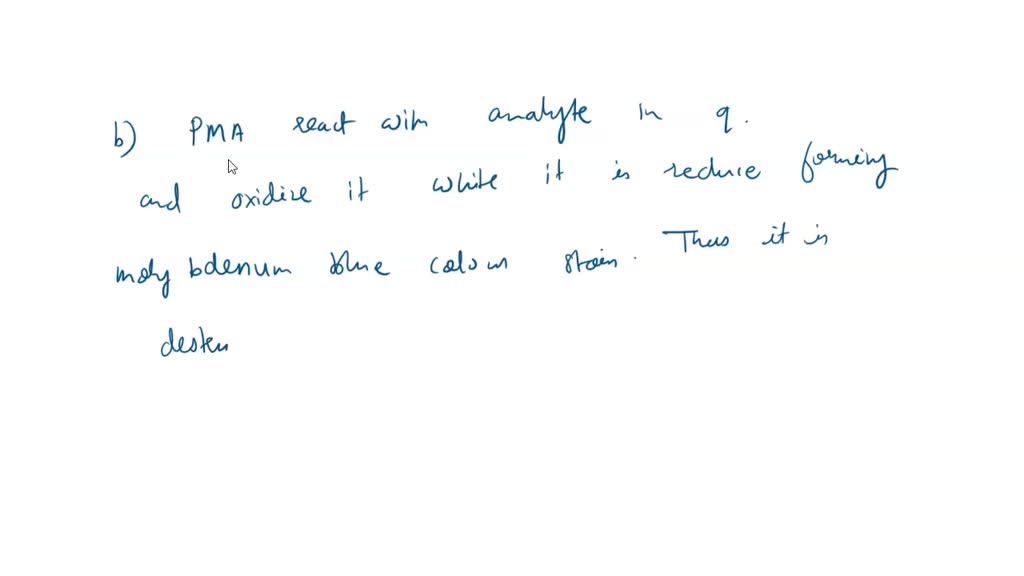 b) PMA react with analyte in q.
and oxidize it while it is reduce forming
molybdenum blue colour stain. Thus it is
destru